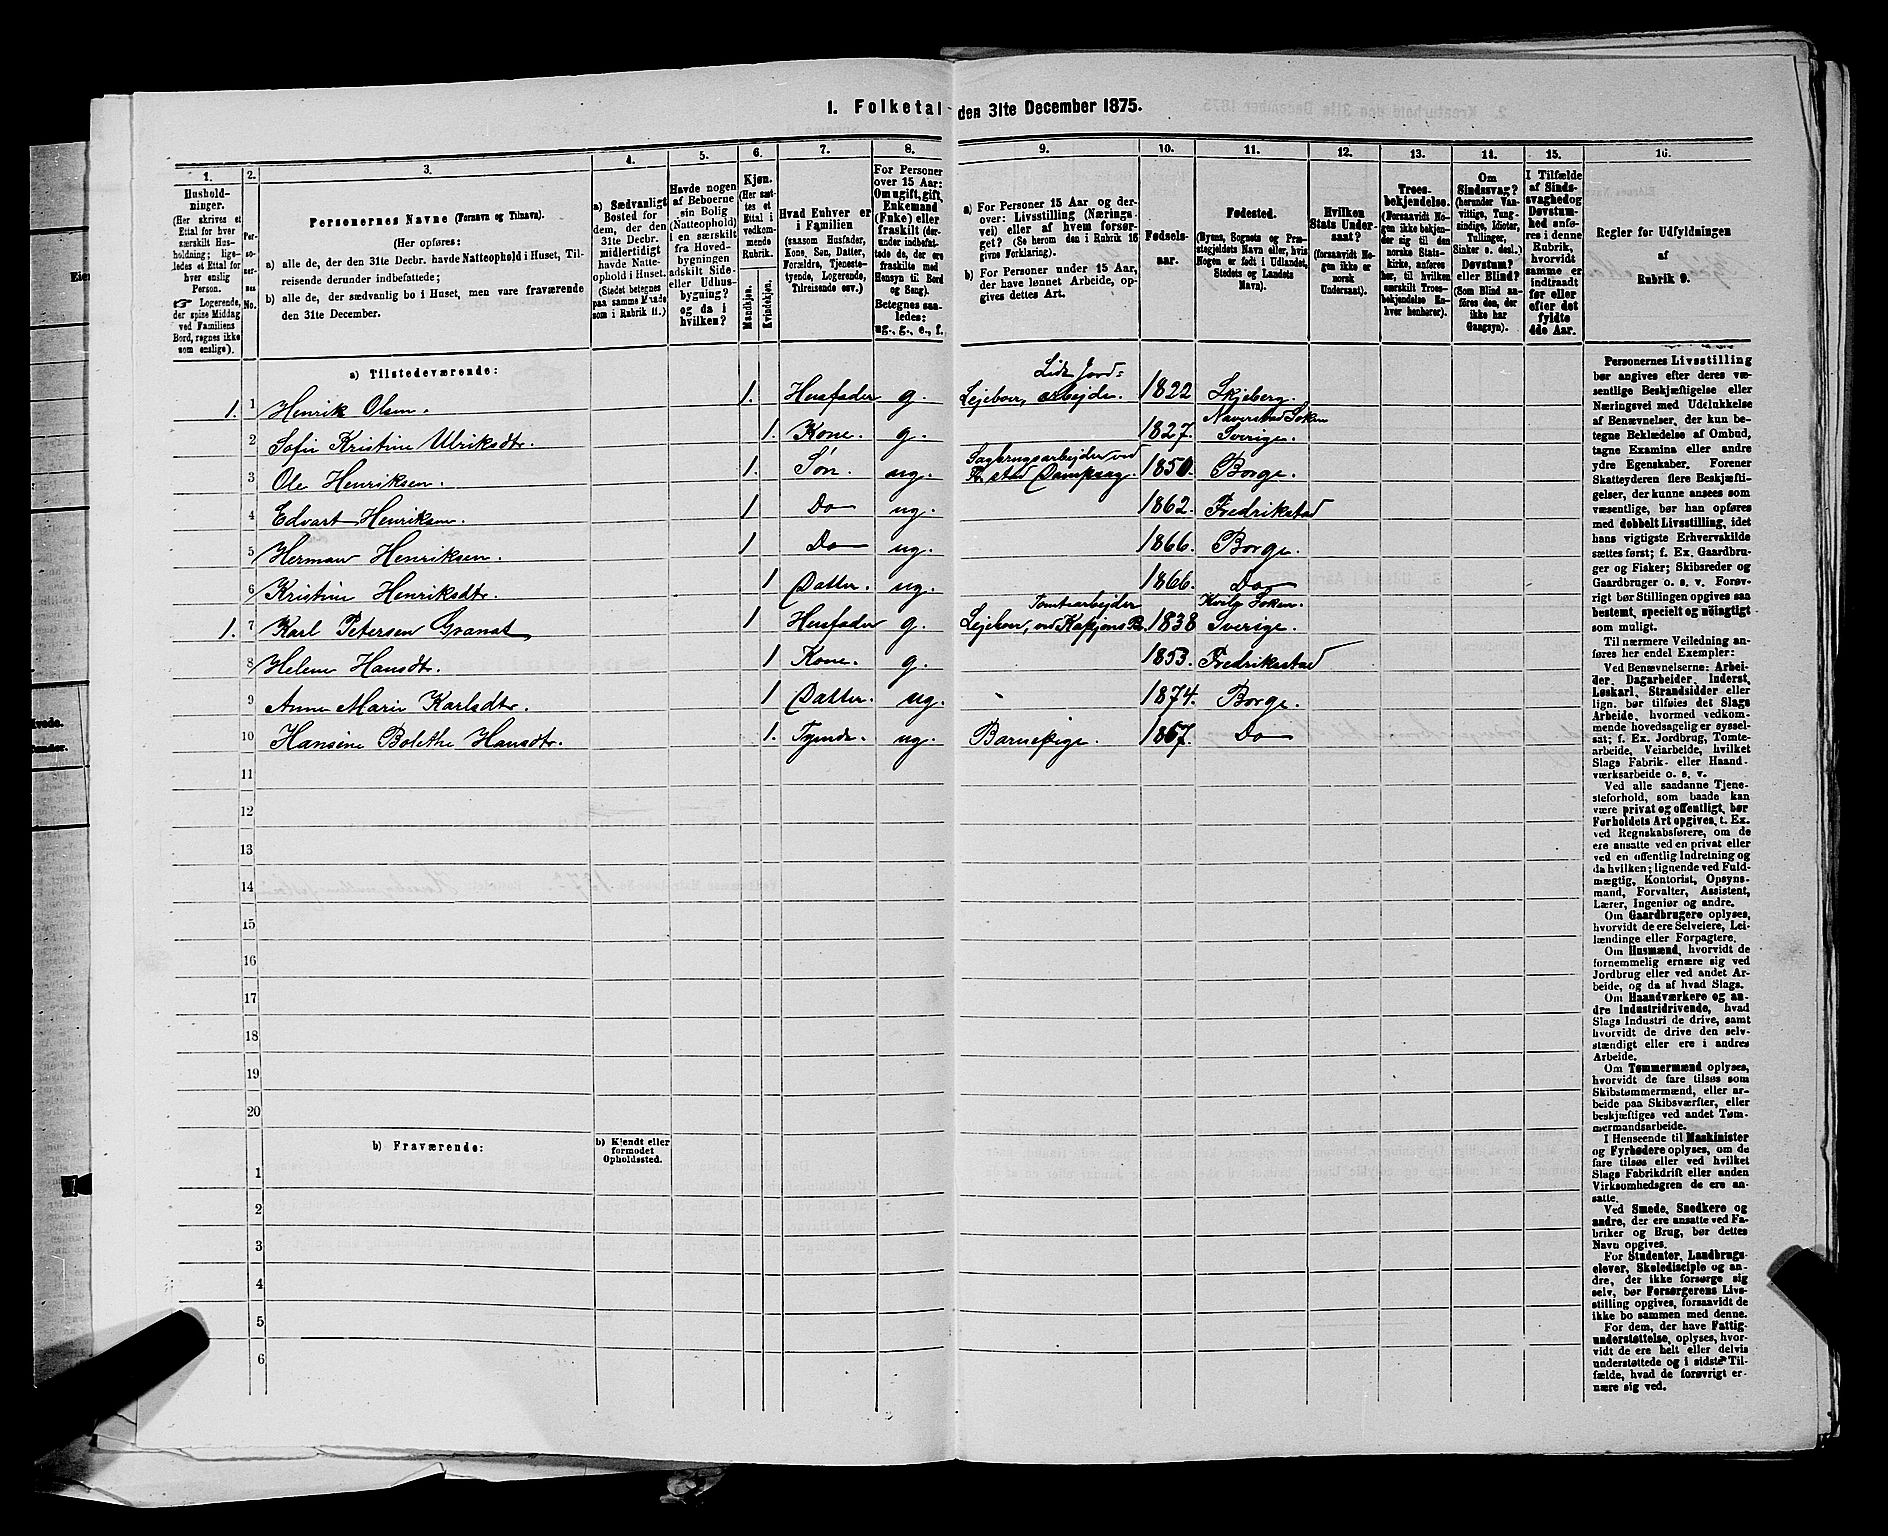 1. Folketal den 31te December 1875.
1.
2.
3.
4.
5.
6.
7.
8.
9.
10.
11.
12.
13.
14.
15.
16.
Hushold-
ninger.
(Her skrives et
Ettal for hver
særskilt Hus-
holdning; lige-
ledes et Ettal for
hver enslig
Person.
☞ Logerende,
der spise Middag
ved Familiens
Bord, regnes ikke
som enslige).
Per-
so-
ner-
nes
No.
Personernes Navne (Fornavn og Tilnavn).
(Her opføres:
a) alle de, der den 31te Decbr. havde Natteophold i Huset, Til-
reisende derunder indbefattede;
b) alle de, der sædvanlig bo i Huset, men vare fraværende
den 31te December.
a) Sædvanligt
Bosted for
dem, der den
31te Decbr.
midlertidigt
havde Natte-
ophold i Huset.
(Stedet betegnes
paa samme Maade
som i Rubrik 11.)
Havde nogen
af Beboerne
sin Bolig
(Natteophold)
i en særskilt
fra Hoved-
bygningen
adskilt Side-
eller Udhus-
bygning?
og da i
hvilken?
Kjøn.
(Her sæt-
tes et
Ettal i
vedkom-
mende
Rubrik.
Mandkjøn.
Kvindekjøn.
Hvad Enhver er
i Familien
(saasom Husfader,
Kone, Søn, Datter,
Forældre, Tjeneste-
tyende, Logerende,
Tilreisende osv.)
For Personer
over 15 Aar:
Om ugift, gift,
Enkemand
(Enke) eller
fraskilt (der-
under indbefat-
tede de, der ere
fraskilte med
Hensyn til Bord
og Seng).
Betegnes saa-
ledes:
ug., g., e., f.
a) For Personer 15 Aar og der-
over: Livsstilling (Nærings-
vei) eller af hvem forsør-
get? (Se herom den i Rubrik 16
givne Forklaring).
b) For Personer under 15 Aar,
der have lønnet Arbeide, op-
gives dettes Art.
Fødsels-
aar.
Fødested.
(Byens, Sognets og Præ-
stegjeldets Navn eller, hvis
Nogen er født i Udlandet,
Stedets og Landets
Navn).
Hvilken
Stats Under-
saat?
(forsaavidt No-
gen ikke er
norsk
Undersaat).
Troes-
bekjendelse.
(Forsaavidt No-
gen ikke bekjen-
der sig til den
norske Stats-
kirke, anføres
her, til hvilken
særskilt Troes-
bekjendelse En-
hver henhører).
Om
Sindssvag?
(herunder Van-
vittige, Tung-
sindige, Idioter,
Tullinger,
Sinker o. desl.)
Døvstum?
eller Blind?
(Som Blind an-
føres den, der
ikke har
Gangsyn).
I Tilfælde
af Sinds-
svaghed og
Døvstum-
hed anfø-
res i denne
Rubrik,
hvorvidt
samme er
indtraadt
før eller
efter det
fyldte
4de Aar.
Regler for Udfyldningen
af
Rubrik 9.
a) Tilstedeværende:
1. 1 Henrik Olsen. 1. Husfader g. Lejeboer, arbejde. Jord= 1822 Skjeberg.
2 Sofie Kristine Ulriksdtr. 1. Kone. g. 1827. Naverstad Soken Sverige.
3 Ole Henriksen. 1. Søn. ug. Sagbrugsarbejder ved Dampsag. 1850. Borge.
4 Edvart Henriksen. 1 Do ug. 1862. Fredrikstad
5 Herman Henriksen. 1 Do ug. 1866. Borge.
6 Kristine Henriksdtr. 1 Datter. ug. 1866. Do
1. 7 Karl Petersen Granat 1 Husfader g. Lejeboer, Tomtearbejder ved 1838 Soken. Sverige.
8 Helene Hansdtr. 1 Kone. g. 1853. Fredriksstad
9 Anne Marie Karlsdtr. 1 Datter. ug. 1874. Borge.
10 Hansine Bolethe Hansdtr. 1. Tyende. ug. Barnepige. 1867. Do
11
12
13
14
15
16
17
18
19
20
b) Fraværende:
b) Kjendt eller
formodet
Opholdssted.
1
2
3
4
5
6
Personernes Livsstilling
bør angives efter deres væ-
sentlige Beskjæftigelse eller
Næringsvei med Udelukkelse
af Benævnelser, der kun be-
tegne Beklædelse af Ombud,
tagne Examina eller andre
ydre Egenskaber. Forener
Skatteyderen flere Beskjæfti-
gelser, der kunne ansees som
væsentlige, bør han opføres
med dobbelt Livsstilling, idet
hans vigtigste Erhvervskilde
sættes først; f. Ex. Gaardbru-
ger og Fisker; Skibsreder og
Gaardbruger o. s. v. Forøv-
rigt bør Stillingen opgives saa
bestemt, specielt og nøiagtigt
som muligt.
Til nærmere Veiledning an-
føres her endel Exempler:
Ved Benævnelserne: Arbei-
der, Dagarbeider, Inderst,
Løskarl, Strandsidder eller
lign. bør tilføies det Slags
Arbeide, hvormed vedkom-
mende hovedsagelig er syssel-
sat; f. Ex. Jordbrug, Tomte-
arbeide, Veiarbeide, hvilket
Slags Fabrik- eller Haand-
værksarbeide o. s. v.
Ved alle saadanne Tjene-
steforhold, som baade kan
være privat og offentligt, bør
Forholdets Art opgives, t. Ex.
ved Regnskabsførere, om de
ere ansatte ved en privat eller
ved en offentlig Indretning og
da hvilken; lignende ved Fuld-
mægtig, Kontorist, Opsyns-
mand, Forvalter, Assistent,
Lærer, Ingeniør og andre.
Om Gaardbrugere oplyses,
hvorvidt de ere Selveiere, Lei-
lændinge eller Forpagtere.
Om Husmænd, hvorvidt de
fornemmelig ernære sig ved
Jordbrug eller ved andet Ar-
beide, og da af hvad Slags.
Om Haandværkere og an-
dre Industridrivende, hvad
Slags Industri de drive, samt
hvorvidt de drive den selv-
stændigt eller ere i andres
Arbeide.
Om Tømmermænd oplyses,
hvorvidt de fare tilsøs som
Skibstømmermænd, eller ar-
beide paa Skibsværfter, eller
beskjæftiges ved andet Tøm-
mermandsarbeide.
I Henseende til Maskinister
og Fyrbødere oplyses, om de
fare tilsøs eller ved hvilket
Slags Fabrikdrift eller anden
Virksomhedsgren de ere an-
satte.
Ved Smede, Snedkere og
andre, der ere ansatte ved Fa-
briker og Brug, bør dettes
Navn opgives.
For Studenter, Landbrugs-
elever, Skoledisciple og an-
dre, der ikke forsørge sig
selv, bør Forsørgerens Livs-
stilling opgives, forsaavidt de
ikke bo sammen med denne.
For dem, der have Fattig-
understøttelse, oplyses, hvor-
vidt de ere helt eller delvis
understøttede og i sidste Til-
fælde, hvad de forøvrigt er-
nære sig ved.